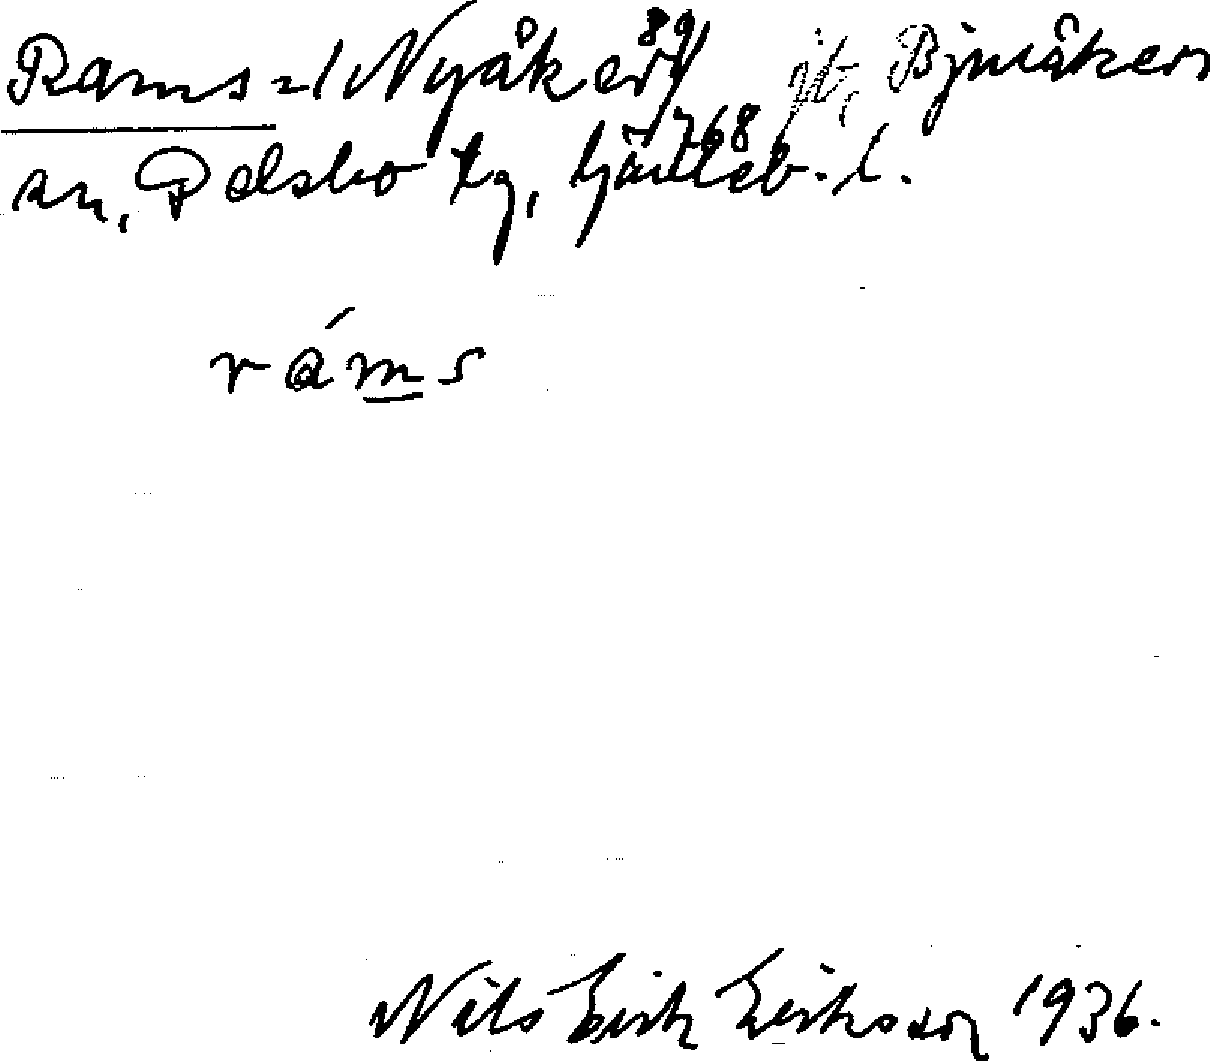 Rams=/Nyåker 89/768 jt, Bjuråkers
sn, Delsbo tg, Gävleb. l.
ráms
Nils Erik Eriksson 1936.